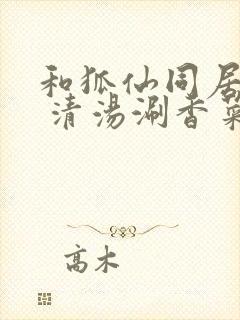 和狐仙同居
清汤涮香菜
高木